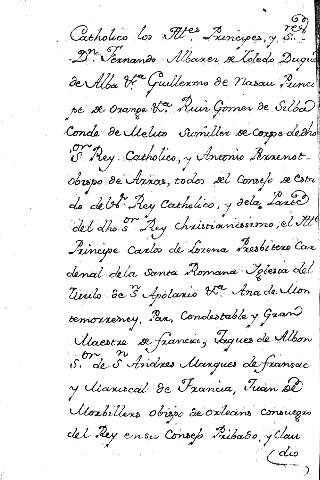 Catholico los Ill.es Principes, y S.res
D.n Fernando Albarez de Toledo Duque
de Alba &.a Guillermo de Nasau Princi
pe de Orange &.a Ruiz Gomez de Silba
Conde de Melito Sumiller de Corps de dho
S.or Rey Catholico, y Antonio Perrenot
obispo de Arras, todos del Consejo de Esta
do de Rey Catholico, y dela
del dho S.or Rey Christianissimo, el Ill.e
Principe Carlos de Lorena Presbitero Car
denal dela Santa Romana Iglesia del
Titulo de S.n Apolario &.a Ana de Mon
temorrency, Par, Condestable y Gran
Maestre de francia, Jaques de Albon
S.or de S.n Andres Marques de fransac
y Mariscal de Francia, Juan de
Morbilliers obispo de orleans consuegro
del Rey en su Consejo Pribado, y Clau
dio